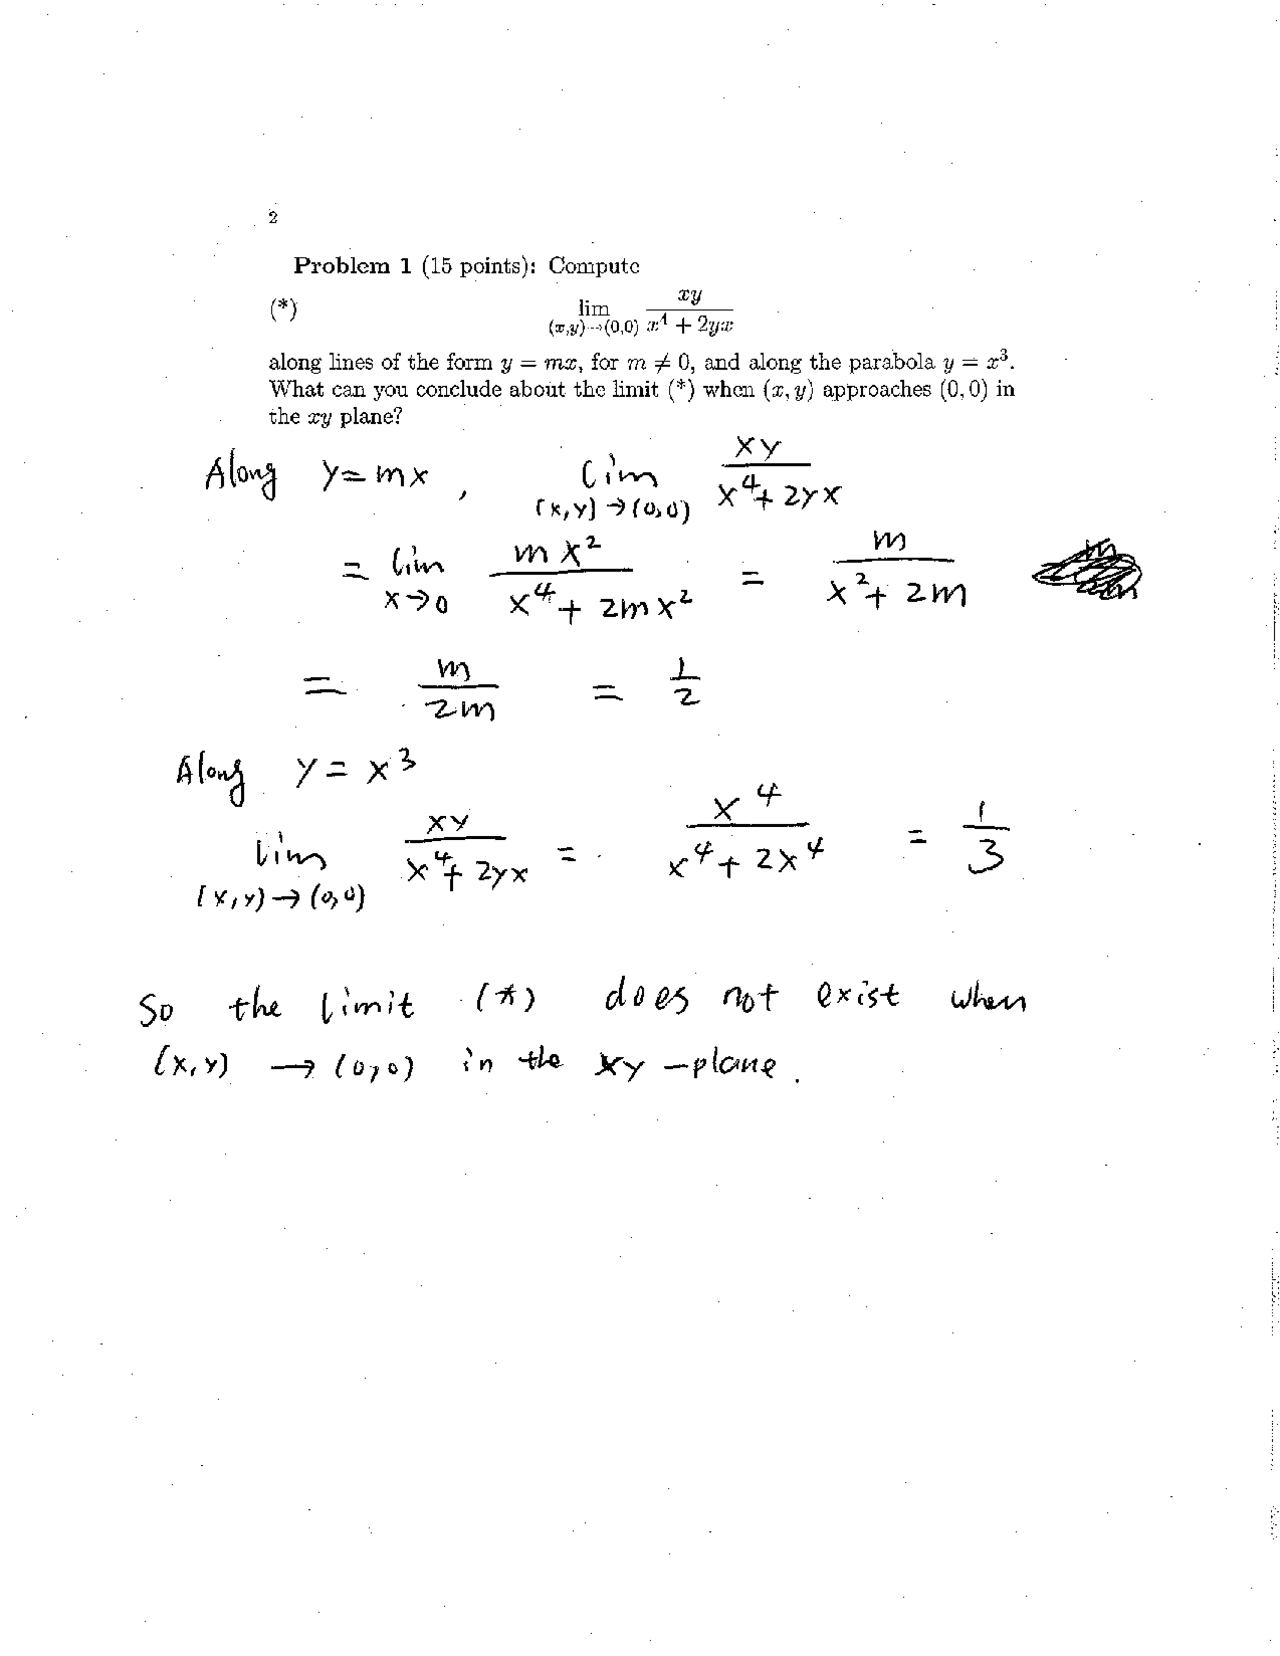 2
Problem 1 (15 points): Compute
(*) lim_{(x,y)→(0,0)} xy / (x^4 + 2yx)
along lines of the form y = mx, for m ≠ 0, and along the parabola y = x^3.
What can you conclude about the limit (*) when (x, y) approaches (0, 0) in
the xy plane?
Along y = mx, lim_{(x,y)→(0,0)} xy / (x^4 + 2yx)
= lim_{x→0} mx^2 / (x^4 + 2mx^2) = m / (x^2 + 2m)
= m / 2m = 1/2
Along y = x^3
lim_{(x,y)→(0,0)} xy / (x^4 + 2yx) = x^4 / (x^4 + 2x^4) = 1/3
So the limit (*) does not exist when
(x,y) → (0,0) in the xy-plane.